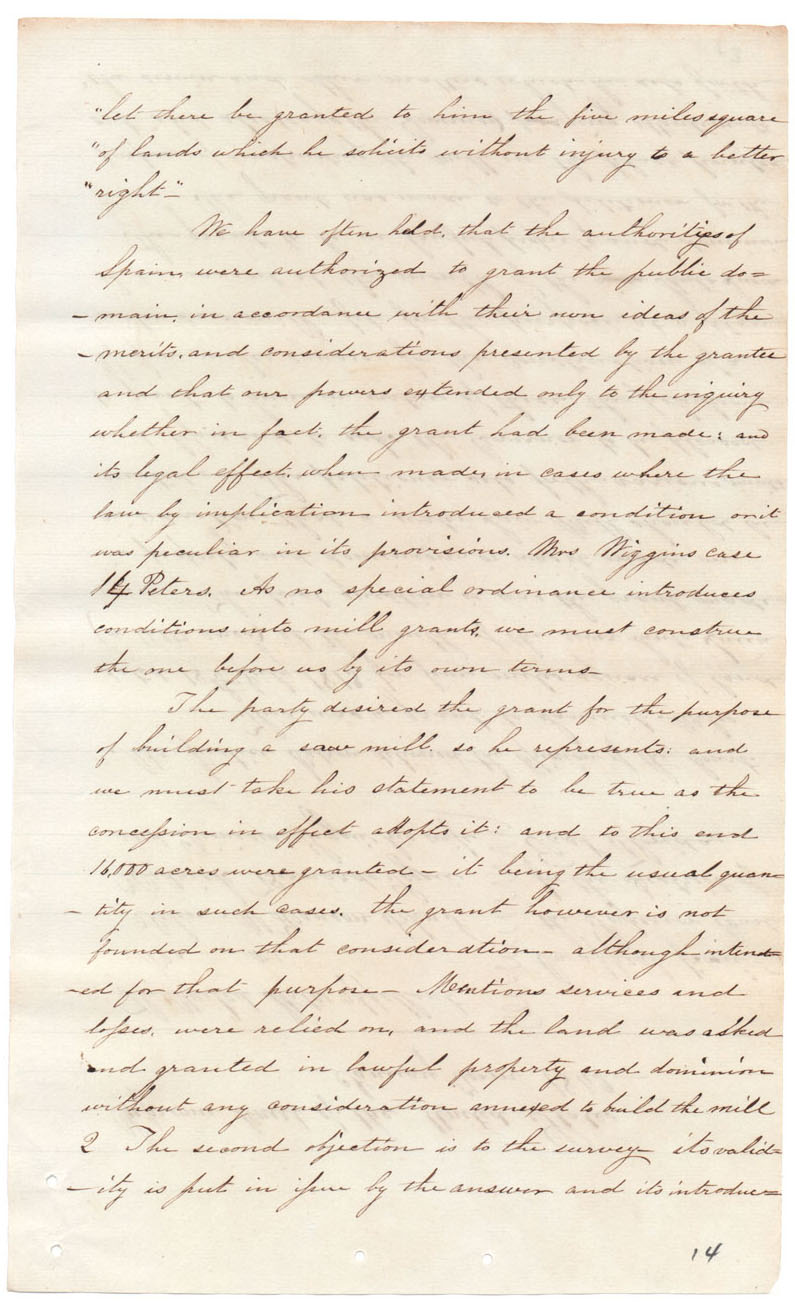 "let there be granted to him the five miles square
"of lands which he solicits without injury to a better
"right"-
We have often held, that the authorities of
Spain, were authorized to grant the public do=
-main, in accordance with their own ideas of the
-merits, and considerations presented by the grantee
and that our powers extended only to the inquiry
whether in fact, the grant had been made: and
its legal effect, when made, in cases where the
law by implication introduced a condition or it
was peculiar in its provisions. Mrs Wiggins case
14 Peters. As no special ordinance introduces
conditions into mill grants, we must construe
the one before us by its own terms-
The party desired the grant for the purpose
of building a saw mill. so he represents: and
we must take his statement to be true as the
concession in effect adopts it: and to this end
16,000 acres were granted - it being the usual quan=
-tity in such cases. the grant however is not
founded on that consideration - although intend=
-ed for that purpose - Meritions services and
losses, were relied on, and the land was asked
and granted in lawful property and dominion
without any consideration annexed to build the mill
2 The second objection is to the survey - its valid=
-ity is put in issue by the answer and its introduc=
14